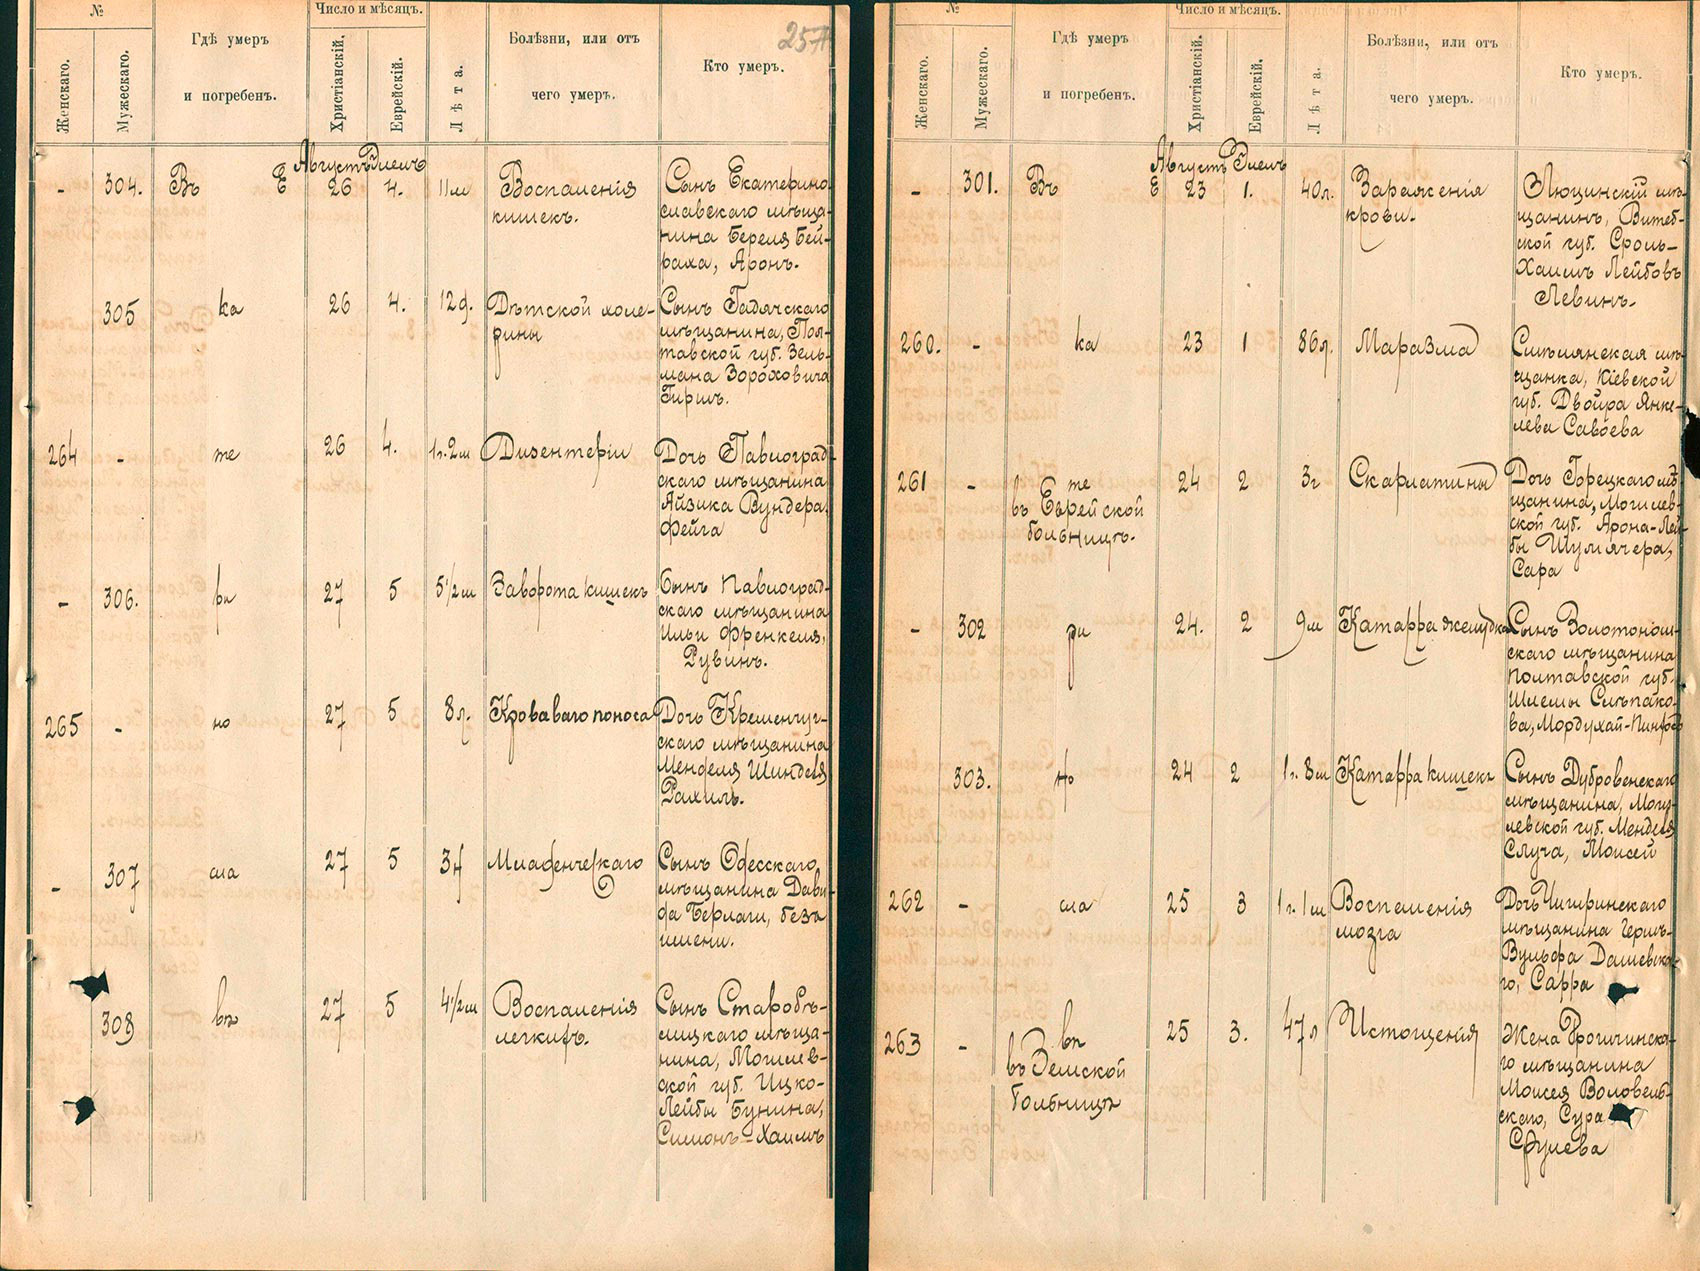 257
№
Число и мѣсяцъ.
Женскаго.
Мужескаго.
Гдѣ умеръ
и погребенъ.
Христіанскій.
Еврейскій.
Лѣта.
Болѣзни, или отъ
чего умеръ.
Кто умеръ.
Августъ
- 304. Въ Е 26 4. 11м Воспаленія
кишекъ.
Сынъ Екатерино-
славскаго мѣща-
нина Береля Бей-
раха, Аронъ.
305 ка 26 4. 12д. Дѣтской холе-
рины
Сынъ Гадячскаго
мѣщанина, Пол-
тавской губ. Зель-
мана Зороховича
Гиршъ.
264 - те 26 4. 1г.2м Дизентеріи
Дочь Павлоград-
скаго мѣщанина
Айзика Вундера,
Фейга
- 306. ри 27 5 5½м Заворота кишекъ
Сынъ Павлоград-
скаго мѣщанина
Ильи Френкеля,
Рувинъ.
265 - но 27 5 8л. Кроваваго поноса
Дочь Кременчуг-
скаго мѣщанина
Менделя Шинделя
Рахиль.
- 307 сла 27 5 3д Младенческаго
Сынъ Одесскаго
мѣщанина Дави-
да Берлаги, безъ
имени.
308 въ 27 5 4½м Воспаленія
легкихъ.
Сынъ Старобѣ-
лицкаго мѣща-
нина, Могилев-
ской губ. Ицко-
Лейбы Бунина,
Симонъ-Хаимъ
№
Число и мѣсяцъ.
Женскаго.
Мужескаго.
Гдѣ умеръ
и погребенъ.
Христіанскій.
Еврейскій.
Лѣта.
Болѣзни, или отъ
чего умеръ.
Кто умеръ.
Августъ
- 301. Въ Е 23 1. 40л. Зараженія
крови.
Люцинскій мѣ-
щанинъ, Витеб-
ской губ. Сроль-
Хаимъ Лейбовъ
Левинъ.
260. - ка 23 1 86л. Маразма
Смѣлянская мѣ-
щанка, Кіевской
губ. Двойра Янке-
лева Савоева
261 - те 24 2 3г Скарлатины
въ Еврейской
больницѣ.
Дочь Горецкаго мѣ-
щанина, Могилев-
ской губ. Арона-Лей-
бы Шумячера,
Сара
- 302 ри 24. 2 9м Катарра желудка
Сынъ Золотонош-
скаго мѣщанина
Полтавской губ.
Шлемы Слѣпако-
ва, Мордухай-Пинхосъ
303. но 24 2 1г. 8м Катарра кишекъ
Сынъ Дубровенскаго
мѣщанина, Моги-
левской губ. Менделя
Случа, Моисей
262 - сла 25 3 1г. 1м Воспаленія
мозга
Дочь Чигиринскаго
мѣщанина Гершъ-
Вульфа Дашевска-
го, Сарра
263 - въ 25 3. 47л Истощенія
въ Земской
больницѣ
Жена
мѣщанина
Моисея Воловель-
скаго, Сура
Срулева